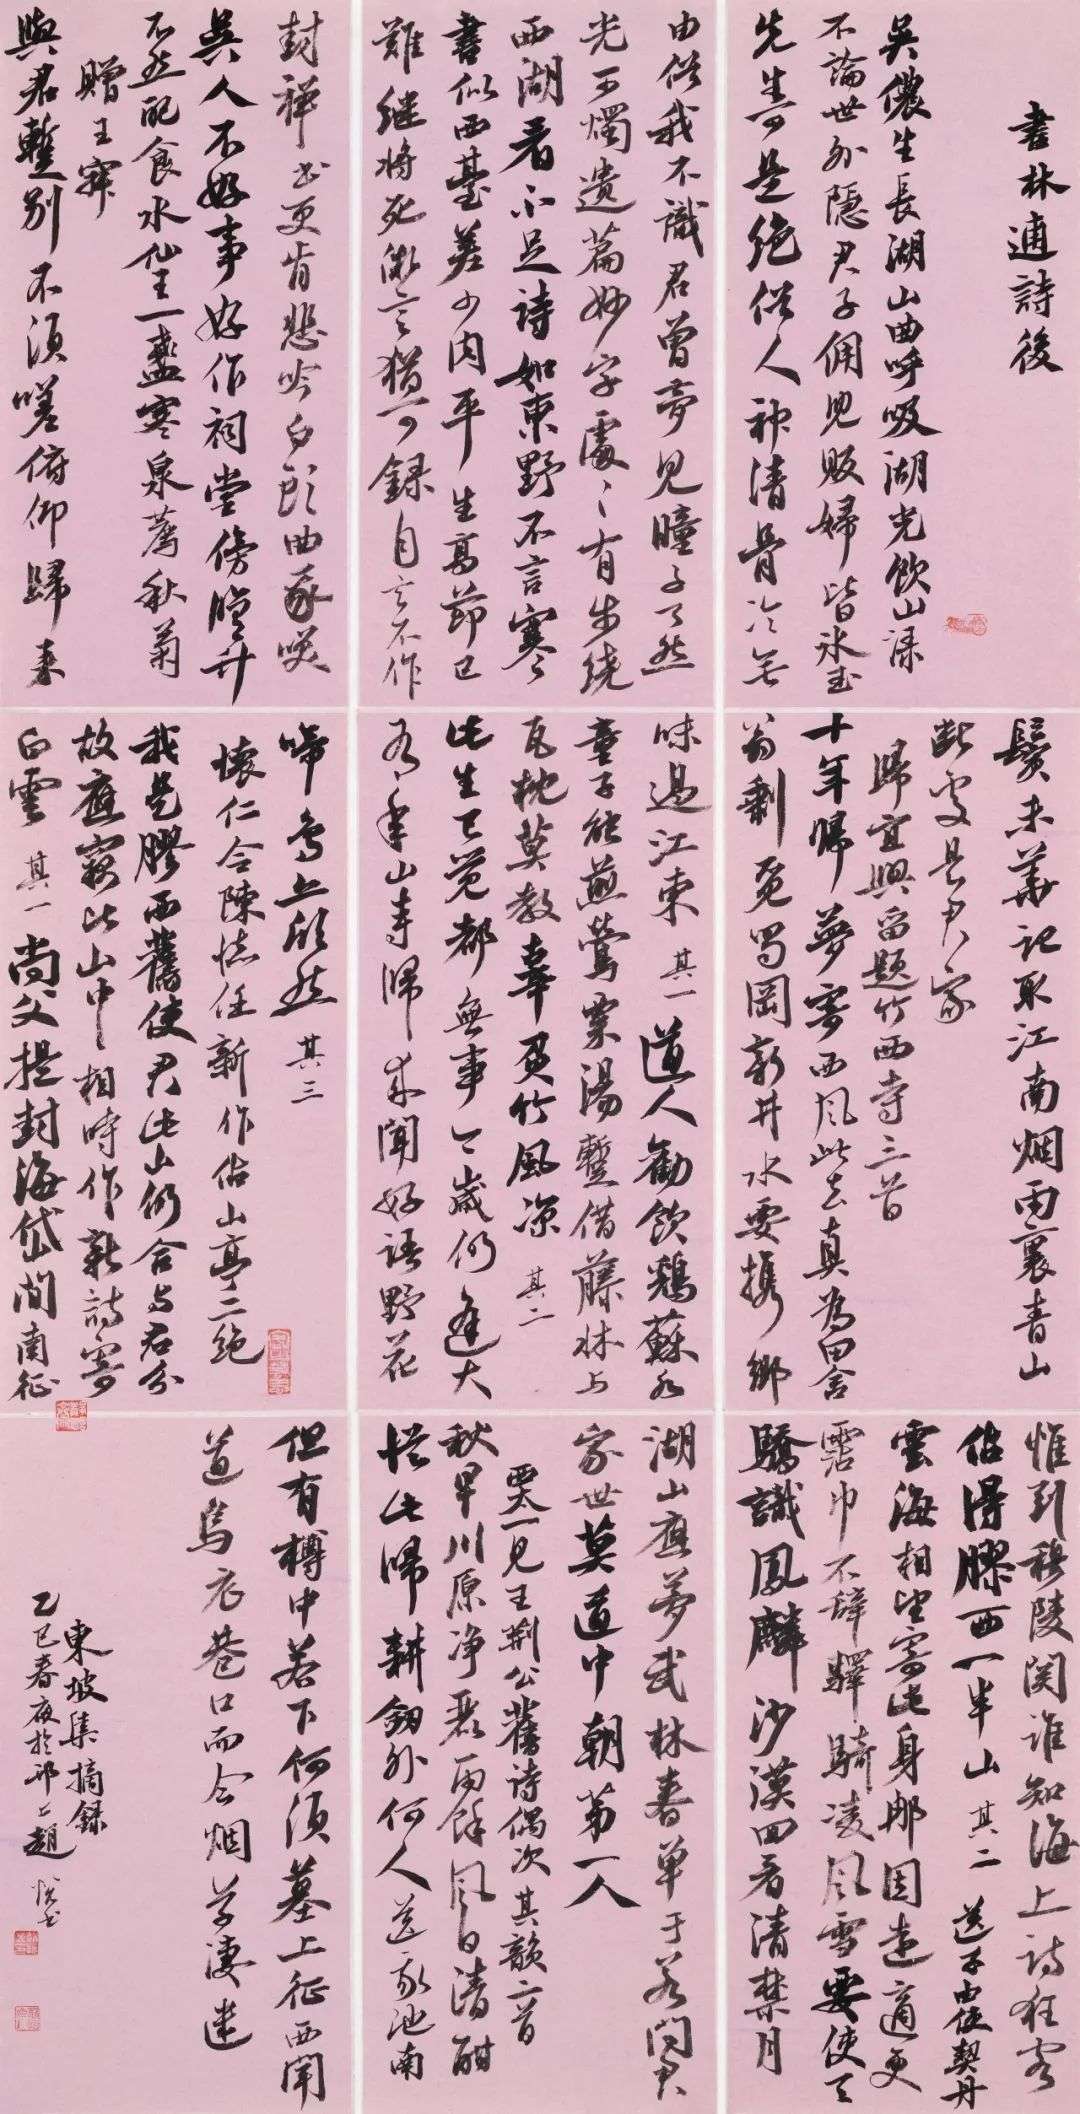 書林逋詩後
吳儂生長湖山曲呼吸湖光飲山渌
不論世外隱君子傭兒販婦皆冰玉
先生可是絕俗人神清骨冷無
由俗我不識君曾夢見瞳子了然
光可燭遺篇妙字處〻有步繞
西湖看不足詩如東野不言寒
書似西臺差少肉平生高節已
難繼將死微言猶可錄自言不作
封禪書更肯悲吟白頭曲我笑
吳人不好事好作祠堂傍脩竹
不然配食水仙王一盞寒泉薦秋菊
贈王寂
與君暫別不須嗟俯仰歸來
鬢未華記取江南烟雨裏青山
斷處是君家
歸宜興留題竹西寺三首
十年歸夢寄西風此去真為田舍
翁剩覓蜀岡新井水要攜鄉
味過江東 其一 道人勸飲鷄蘇水
童子能煎鶯粟湯暫借藤牀与
瓦枕莫教辜負竹風涼 其二
此生已覺都無事今歲仍逢大
有年山寺歸來聞好語野花
啼鳥亦欣然 其三
懷仁令陳德任新作佔山亭二絕
我是膠西舊使君此山仍合与君分
故應竊比山中相時作新詩寄
白雲 其一 尚父提封海岱間南征
惟到穆陵関誰知海上詩狂客
佔得膠西一半山 其二 送子由使契丹
雲海相望寄此身那因遠適更
霑巾不辭驛騎凌風雪要使天
驕識鳳麟沙漠回看清禁月
湖山應夢武林春單于若問君
家世莫道中朝第一人
西太一見王荊公舊詩偶次其韻二首
秋早川原淨麗雨餘風日清酣
從此歸耕劍外何人送我池南
但有樽中若下何須墓上征西聞
道烏衣巷口而今烟草淒迷
東坡集摘錄
乙巳春夜於邗上趙